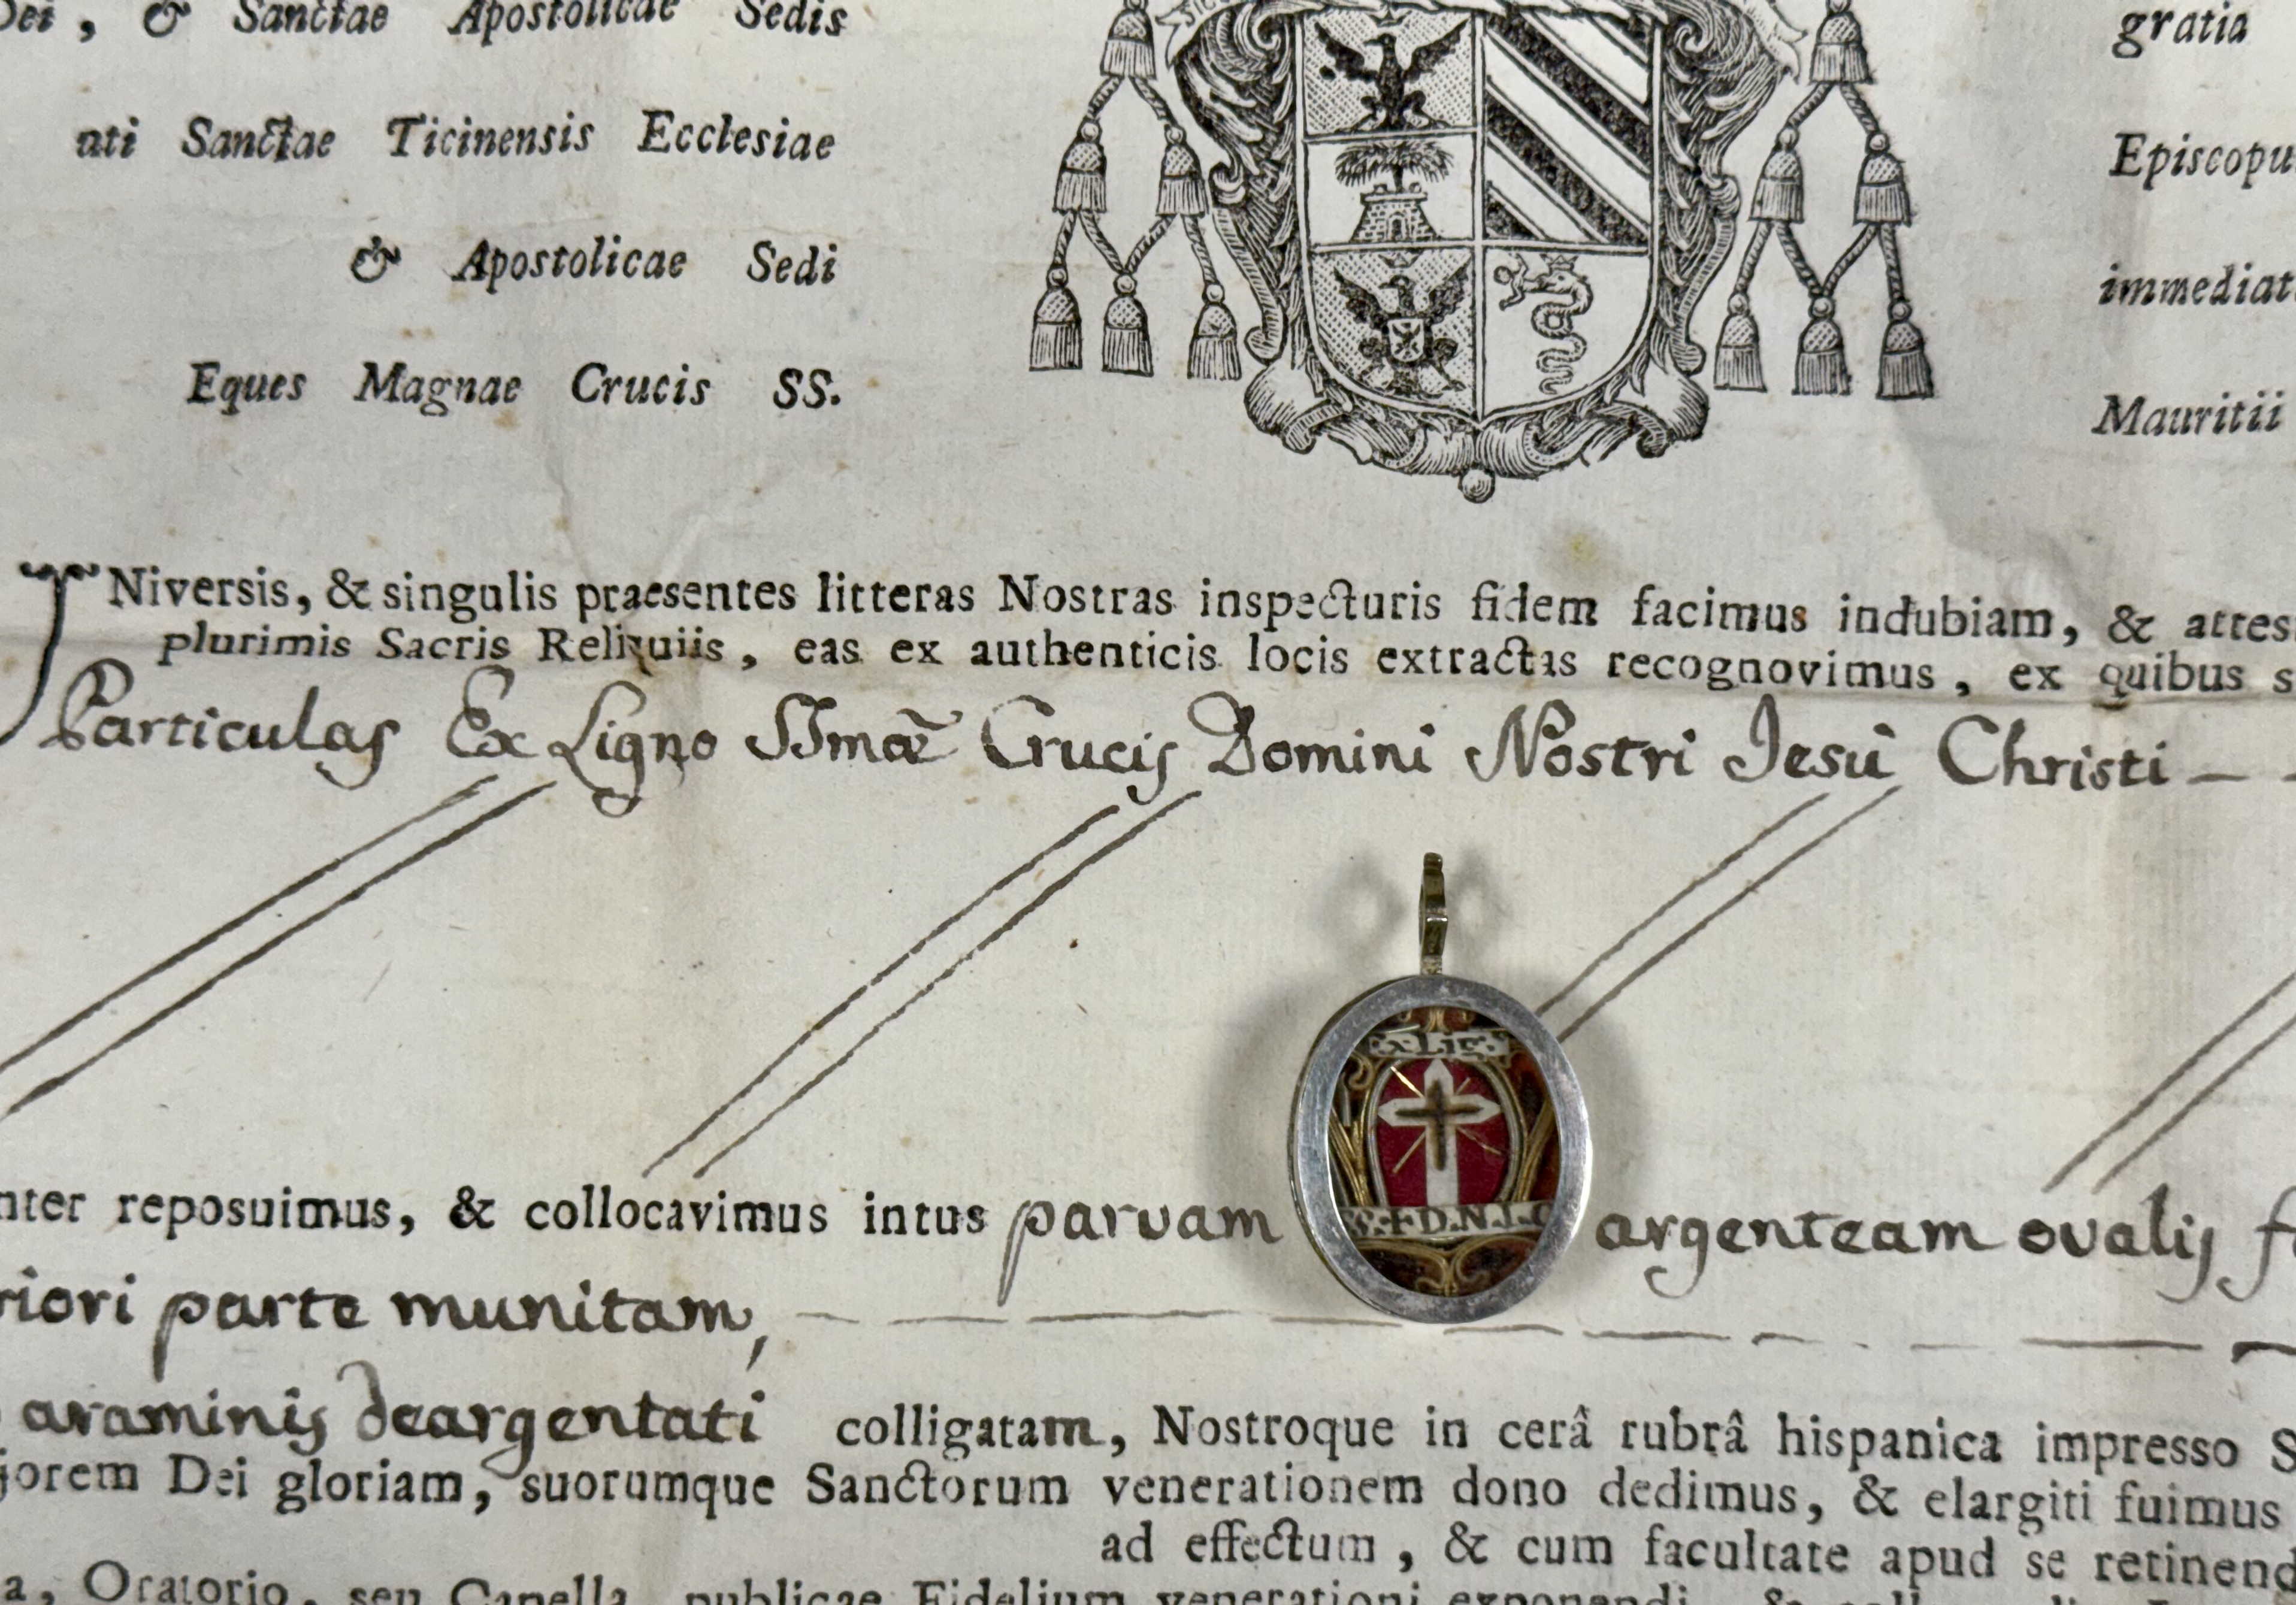 Dei, & Sanctae Apostolicae Sedis
gratia
ati Sanctae Ticinensis Ecclesiae
Episcopu
& Apostolicae Sedi
immediat
Eques Magnae Crucis SS.
Mauritii
Niversis, & singulis praesentes litteras Nostras inspecturis fidem facimus indubiam, & attes
plurimis Sacris Reliquiis, eas ex authenticis locis extractas recognovimus, ex quibus s
Particulas Ex Ligno SSmæ Crucis Domini Nostri Jesu Christi
Ex Lig.
D.N.J.C
nter reposuimus, & collocavimus intus parvam argenteam ovalis f
riori parte munitam,
araminis deargentati colligatam, Nostroque in cerâ rubrâ hispanica impresso S
jorem Dei gloriam, suorumque Sanctorum venerationem dono dedimus, & elargiti fuimus
ad effectum, & cum facultate apud se retinend
a, Oratorio, seu Capella, publicae Fidelium venerationi exponendi, &